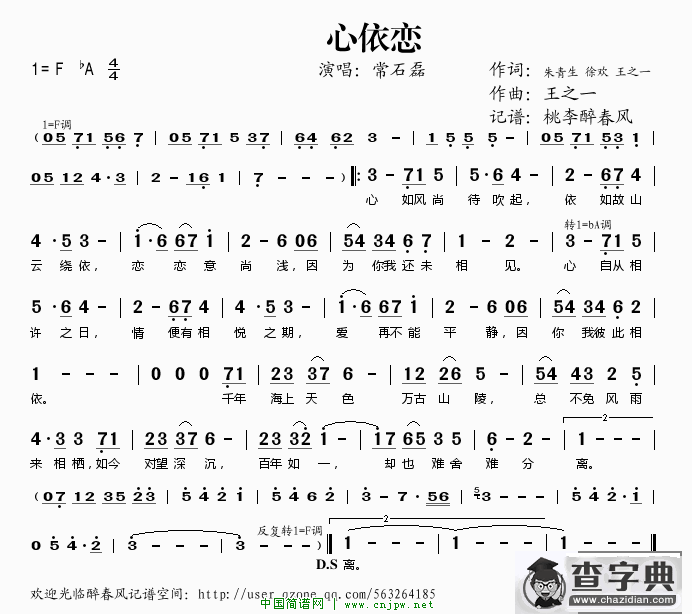 心依恋
1=F ♭A 4/4 演唱：常石磊 作词：朱青生 徐欢 王之一
作曲：王之一
记谱：桃李醉春风
1=F调
( 05 71 56 7 | 05 71 5 37 | 64 62 3 - | 1 5 5 - | 05 71 53 1 |
05 12 4·3 | 2 - 16 1 | 7 - - - ) ‖: 3 - 71 5 | 5·6 4 - | 2 - 67 4 |
心 如风尚 待 吹起， 依 如故山
转1=bA调
4·5 3 - | 1·6 67 1 | 2 - 6 06 | 54 34 6 7 | 1 - 2 - | 3 - 71 5 |
云绕依， 恋 恋意 尚 浅，因 为 你我还未 相 见。 心 自从相
5·6 4 - | 2 - 67 4 | 4·5 3 - | 1·6 67 1 | 2 - 6 06 | 54 34 6 2 |
许之日， 情 便有相 悦之期， 爱 再不能 平 静，因 你 我彼此相
1 - - - | 0 0 0 71 | 23 37 6 - | 12 26 5 - | 54 43 2 5 |
依。 千年 海上 天 色 万古 山 陵， 总 不免 风 雨
2
4·3 3 71 | 23 37 6 - | 23 32 1 - | 17 65 3 5 | 6 - 2 - | 1 - - - |
来相栖，如今 对望 深 沉， 百年 如 一， 却也 难舍 难 分 离。
( 07 12 35 23 | 5 4 2 1 | 5 4 6 2 | 3 - 7·56 | 53 - - - | 5 4 2·1 |
反复转1=F调
2
0 5 4·2 | 3 - - - | 3 - - - ) ‖ 1 - - - | 1 - - - | 1 - - - ‖
D.S 离。
欢迎光临醉春风记谱空间：http://user qzone qq.com/563264185
中国简谱网 | www.cnjpw.net
查字典
www.chazidian.com